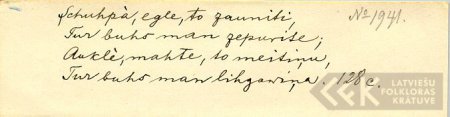 Schuhpà, egle, to zauniti, № 1941.
Tur buhs man zepurite;
Auklè, mahte, to meitiņu,
Tur buhs man lihgawiņa. 128 c.
LATVIEŠU
FOLKLORAS
KRĀTUVE